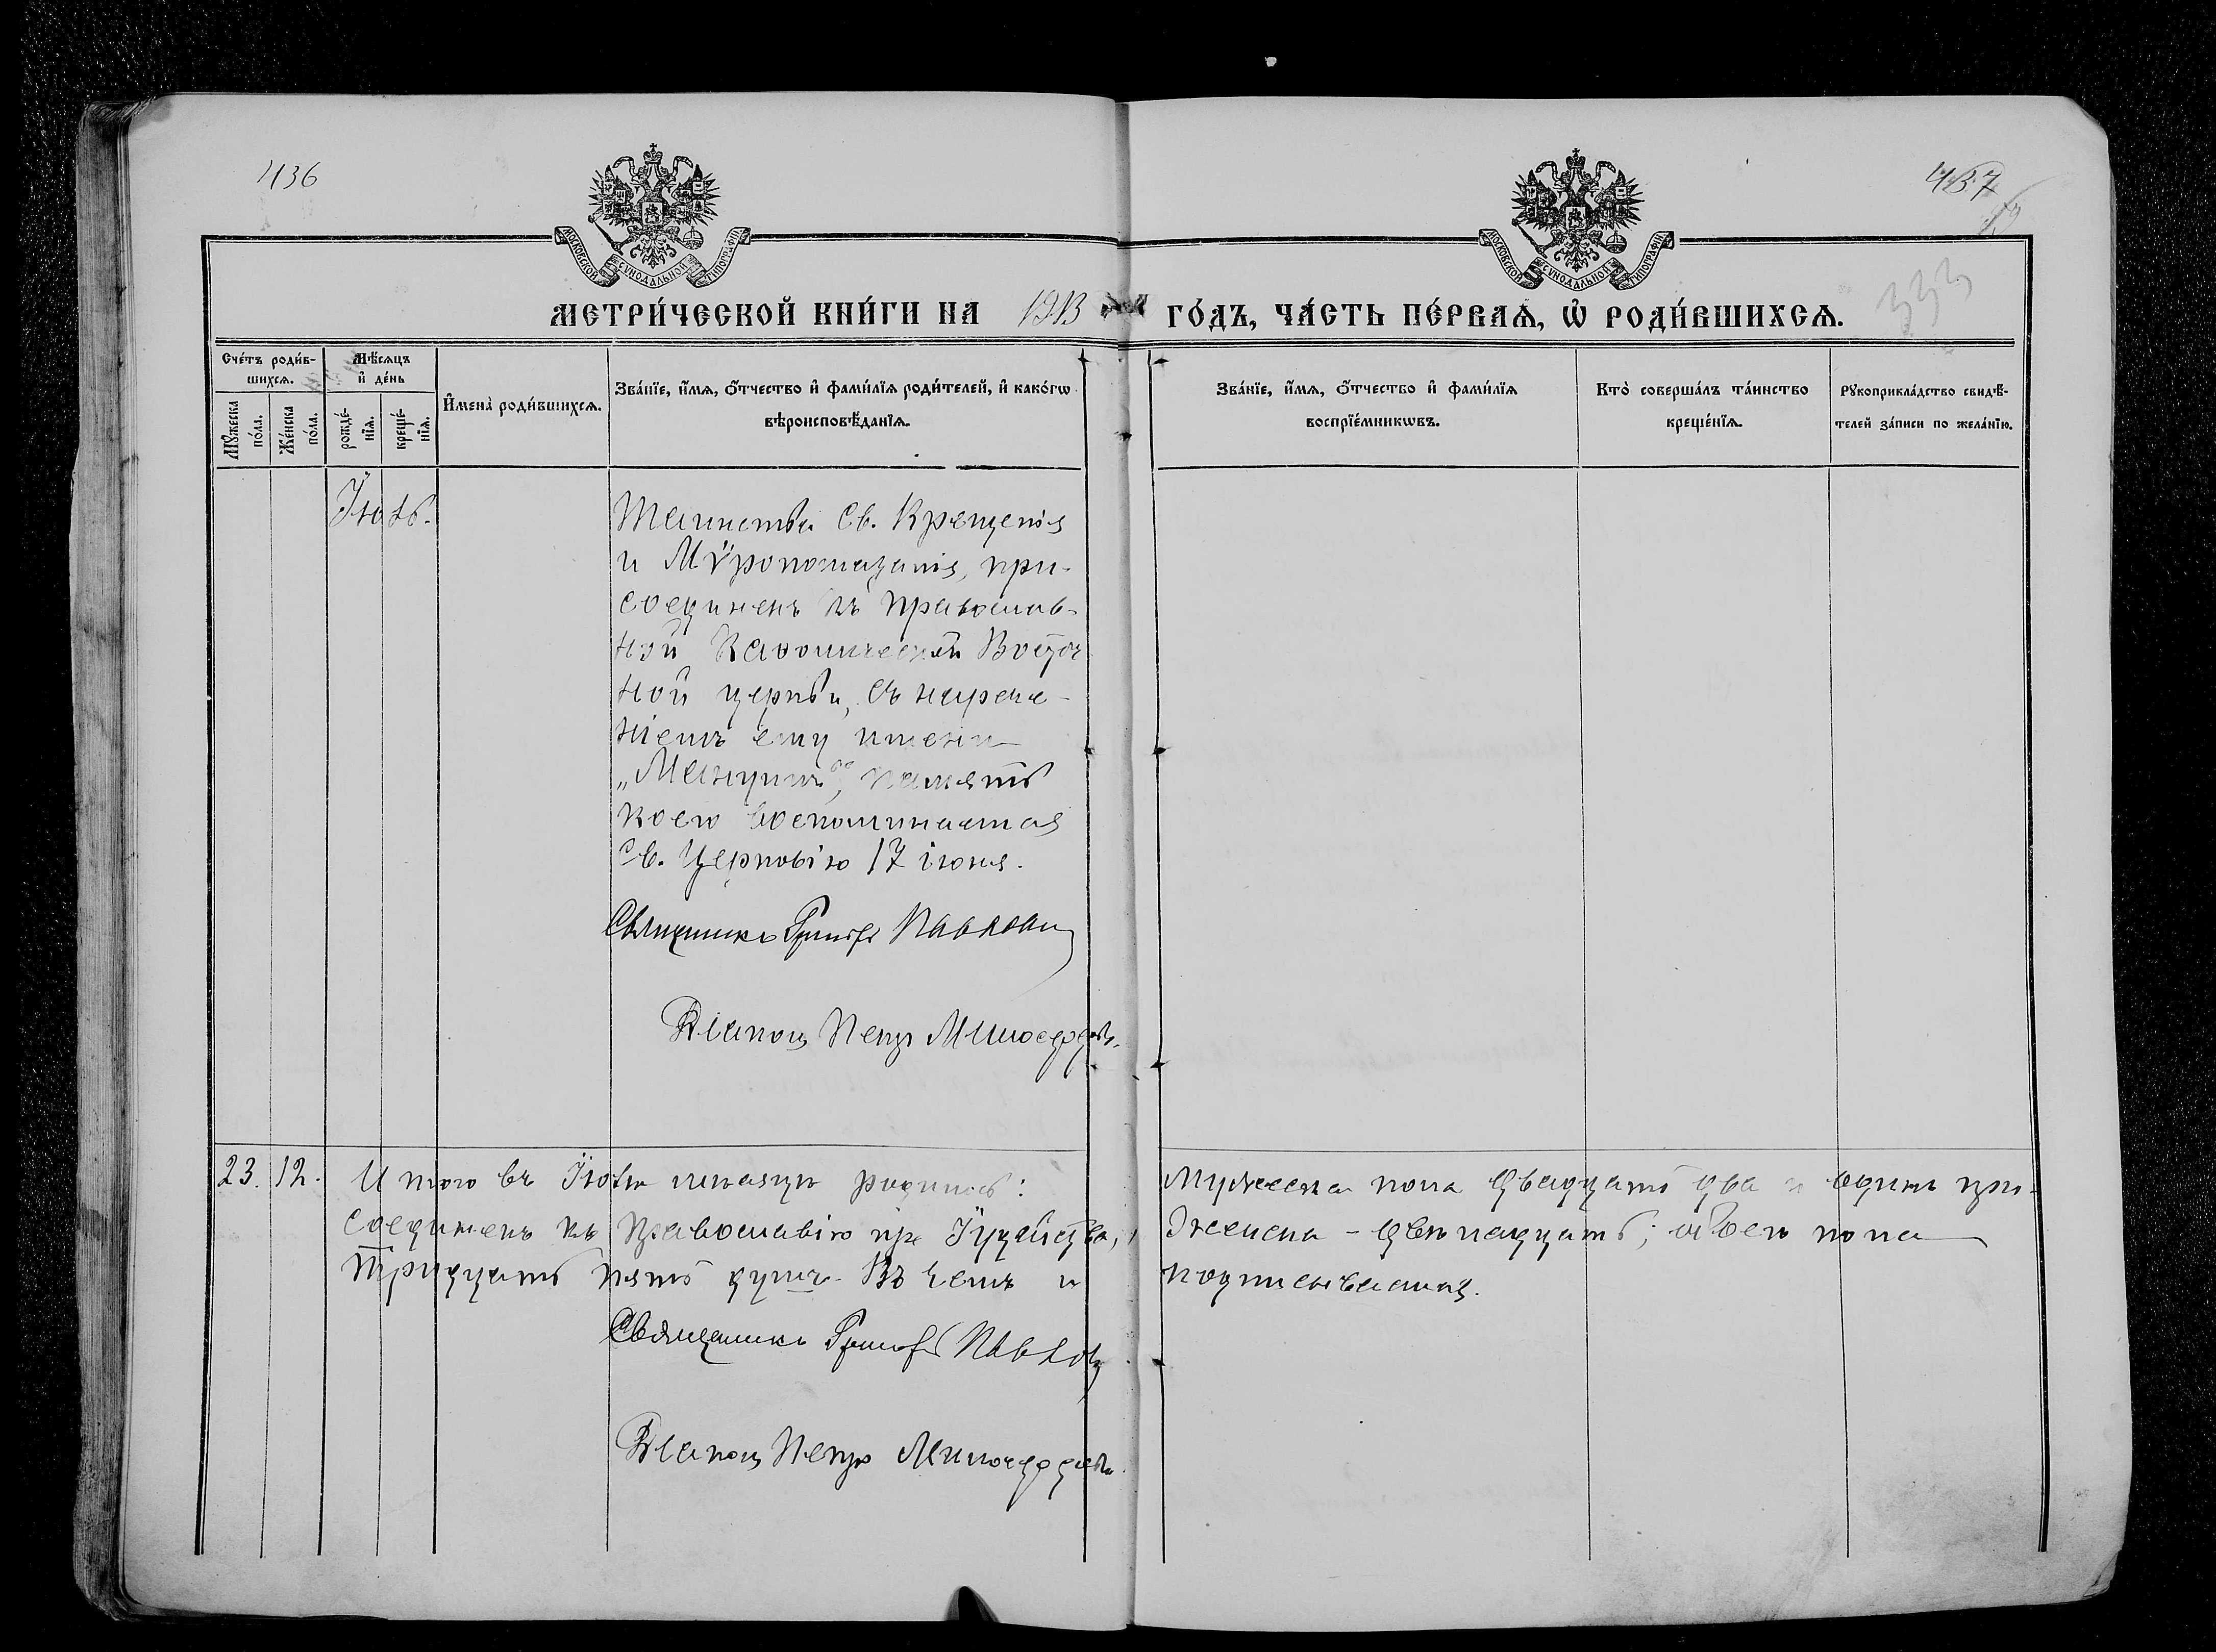 436
457
333
МОСКОВСКОЙ СѴНОДАЛЬНОЙ ТИПОГРАФІИ
МОСКОВСКОЙ СѴНОДАЛЬНОЙ ТИПОГРАФІИ
МЕТРИ́ЧЕСКОЙ КНИ́ГИ НА 1913 ГО́ДЪ, ЧА́СТЬ ПЕ́РВАѦ, Ѡ҆ РОДИ́ВШИХСѦ.
Сче́тъ роди́в-
шихсѧ.
Мѣ́сѧцъ
и҆ де́нь
Мꙋ́жеска по́ла.
Же́нска по́ла.
рожде́-
нїѧ.
креще́-
нїѧ.
И҆мена̀ роди́вшихсѧ.
Зва́нїе, и҆́мѧ, ѻ҆́тчество и҆ фами́лїѧ роди́телей, и҆ како́гѡ
вѣроисповѣ́данїѧ.
Зва́нїе, и҆́мѧ, ѻ҆́тчество и҆ фами́лїѧ
воспрїе́мникѡвъ.
Кто̀ соверша́лъ та́инство
креще́нїѧ.
Рꙋкоприкла́дство свидѣ́-
телей за́писи по жела́нїю.
Іюль.
Таинства Св. Крещенія
и Мѵропомазанія, при-
соединенъ къ православ-
ной Каѳолической Восточ
ной церкви, съ нарече-
ніемъ ему имени
„Мануилъ“, память
коего воспоминается
Св. Церковію 17 іюня.
Священникъ Григорій Павловъ
Діаконъ Петръ Милосердовъ.
23. 12. Итого въ Іюлѣ мѣсяцѣ родилось: Мужеска пола двадцать два и одинъ при-
соединенъ къ Православію изъ Іудейства, Женска - двѣнадцать; обоего пола
тридцать пять душъ. Въ чемъ и подписываемся.
Священникъ Григорій Павловъ
Діаконъ Петръ Милосердовъ.